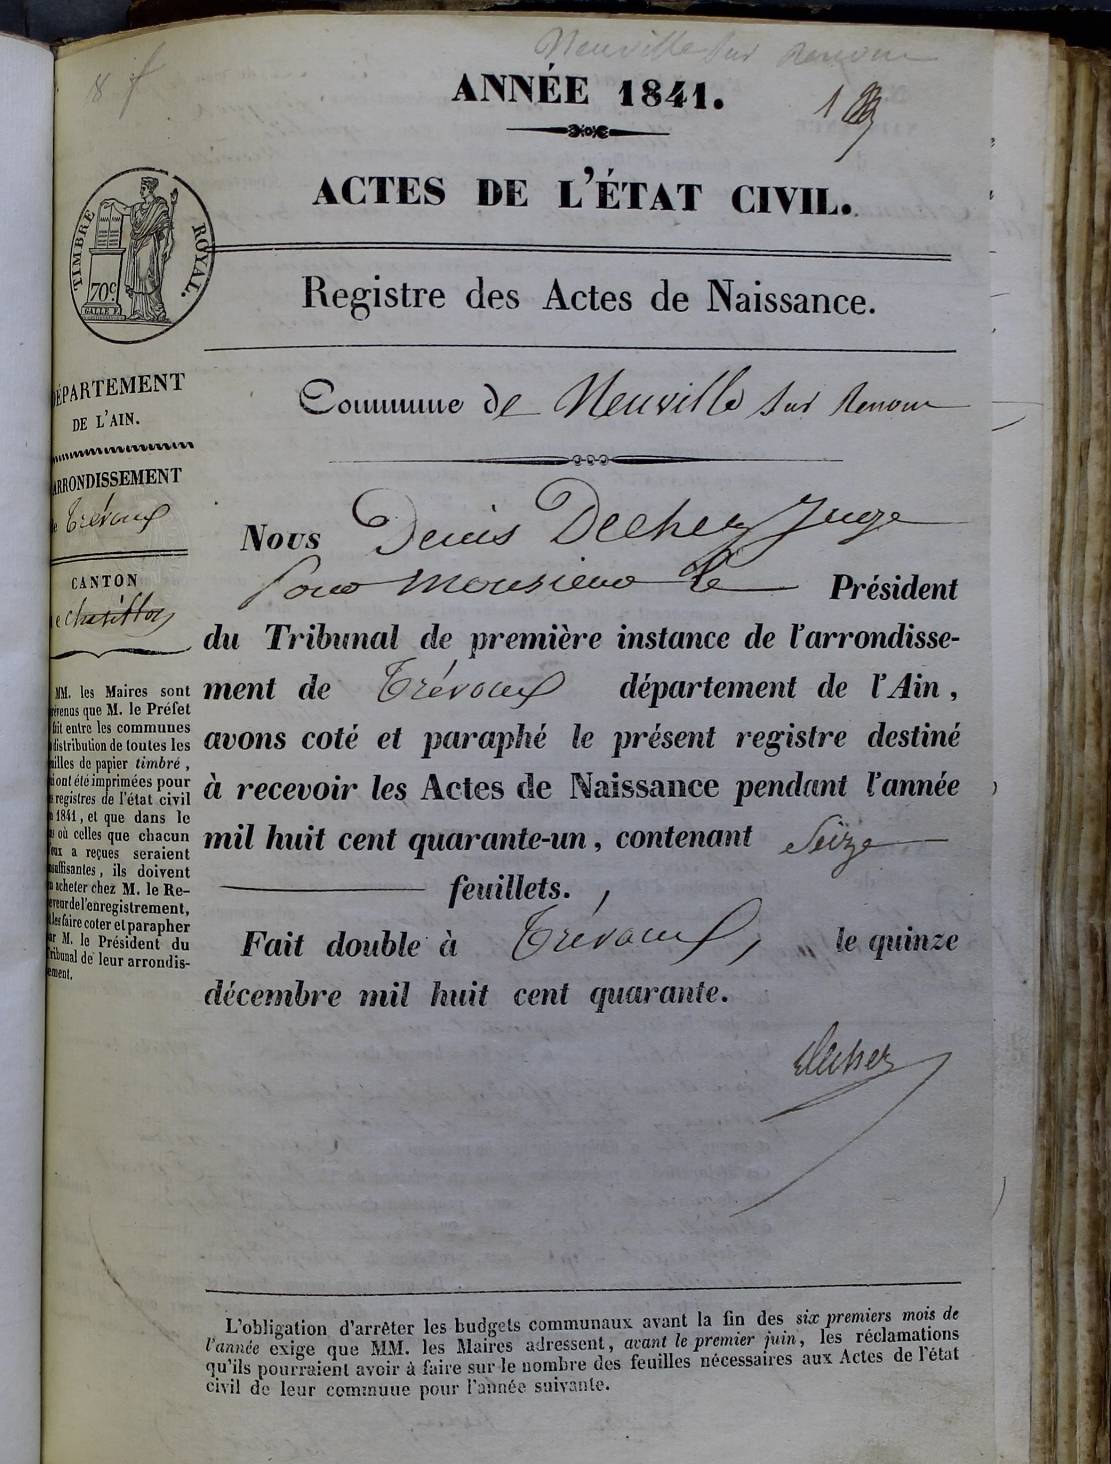 Neuville sur Renom
8 f
ANNÉE 1841.
1
ACTES DE L'ÉTAT CIVIL.
TIMBRE ROYAL.
70c
GALLE F.
Registre des Actes de Naissance.
DÉPARTEMENT
DE L'AIN.
Commune de Neuville sur Renom
ARRONDISSEMENT
de Trévoux
CANTON
de Chatillon
MM. les Maires sont
prévenus que M. le Préfet
fait entre les communes
distribution de toutes les
feuilles de papier timbré,
qui ont été imprimées pour
les registres de l'état civil
en 1841, et que dans le
cas où celles que chacun
d'eux a reçues seraient
insuffisantes, ils doivent
en acheter chez M. le Re-
ceveur de l'enregistrement,
et les faire coter et parapher
par M. le Président du
Tribunal de leur arrondis-
sement.
Nous Denis Decher Juge
pour Monsieur le Président
du Tribunal de première instance de l'arrondisse-
ment de Trévoux département de l'Ain,
avons coté et paraphé le présent registre destiné
à recevoir les Actes de Naissance pendant l'année
mil huit cent quarante-un, contenant Seize
feuillets.
Fait double à Trévoux, le quinze
décembre mil huit cent quarante.
Decher
L'obligation d'arrêter les budgets communaux avant la fin des six premiers mois de
l'année exige que MM. les Maires adressent, avant le premier juin, les réclamations
qu'ils pourraient avoir à faire sur le nombre des feuilles nécessaires aux Actes de l'état
civil de leur commune pour l'année suivante.